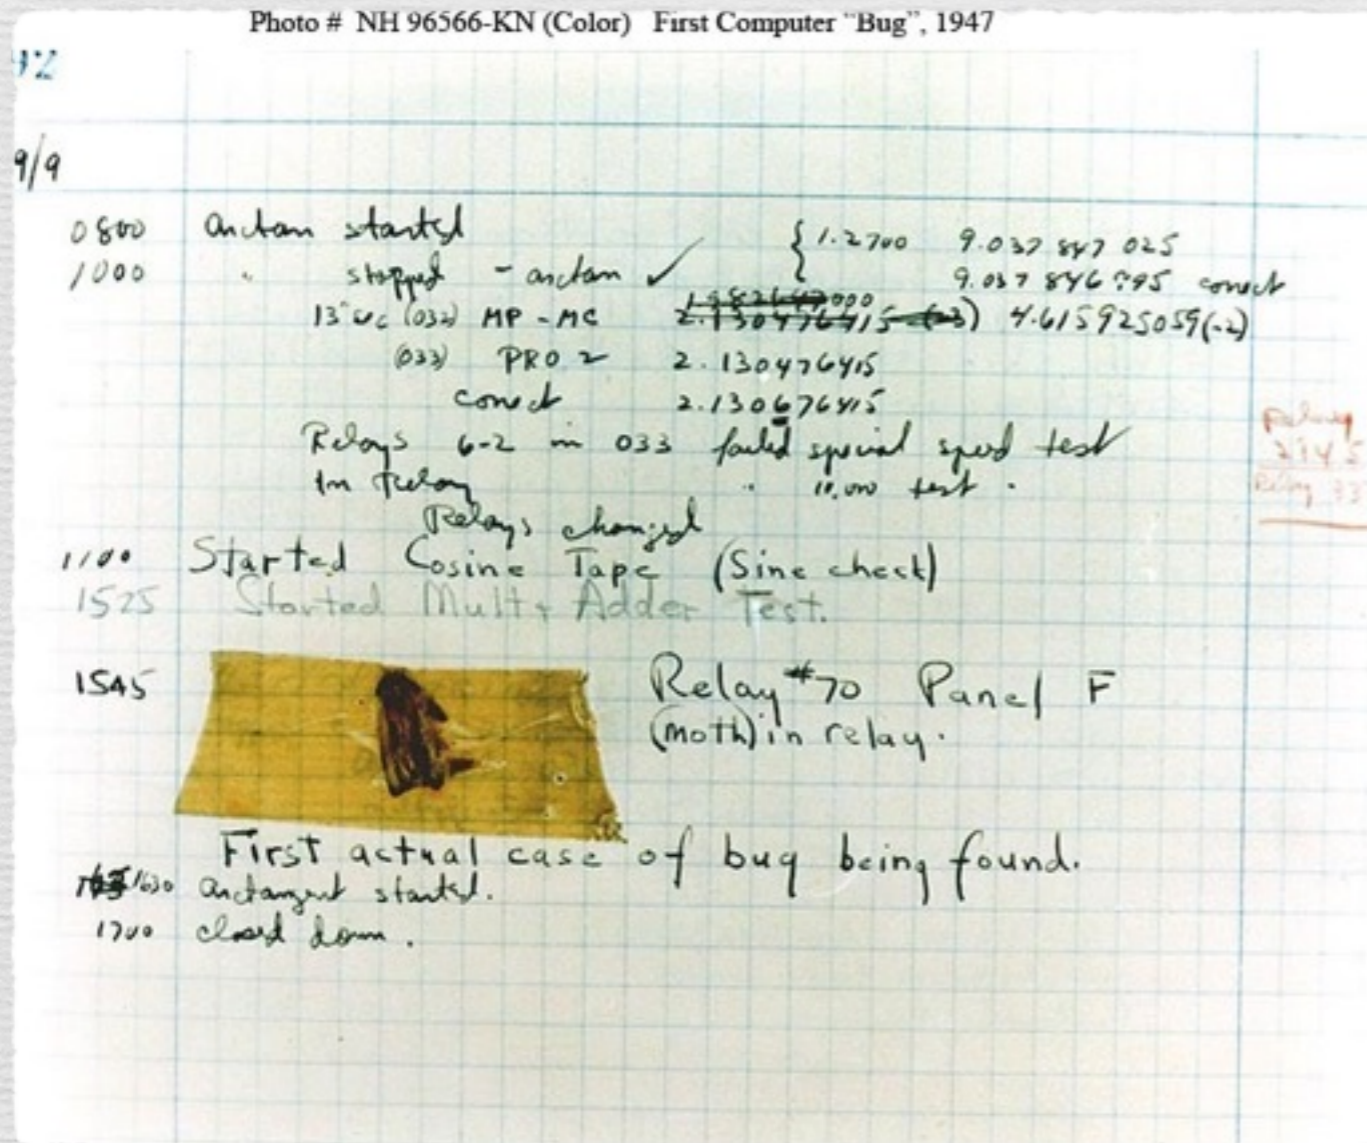 Photo # NH 96566-KN (Color) First Computer "Bug", 1947
92
9/9
0800 Antan started
1000 " stopped - antan ✓ { 1.2700 9.037 847 025
9.037 846 995 conect
13" uc (032) MP - MC 2.130476415 4.615925059(-2)
(033) PRO 2 2.130476415
conect 2.130676415
Relays 6-2 in 033 failed special speed test
In Relay " 11.000 test .
Relays changed
1100 Started Cosine Tape (Sine check)
1525 Started Mult + Adder Test.
1545 Relay #70 Panel F
(moth) in relay.
First actual case of bug being found.
1630 Antangent started.
1700 closed down.
Relay
2145
Relay 33